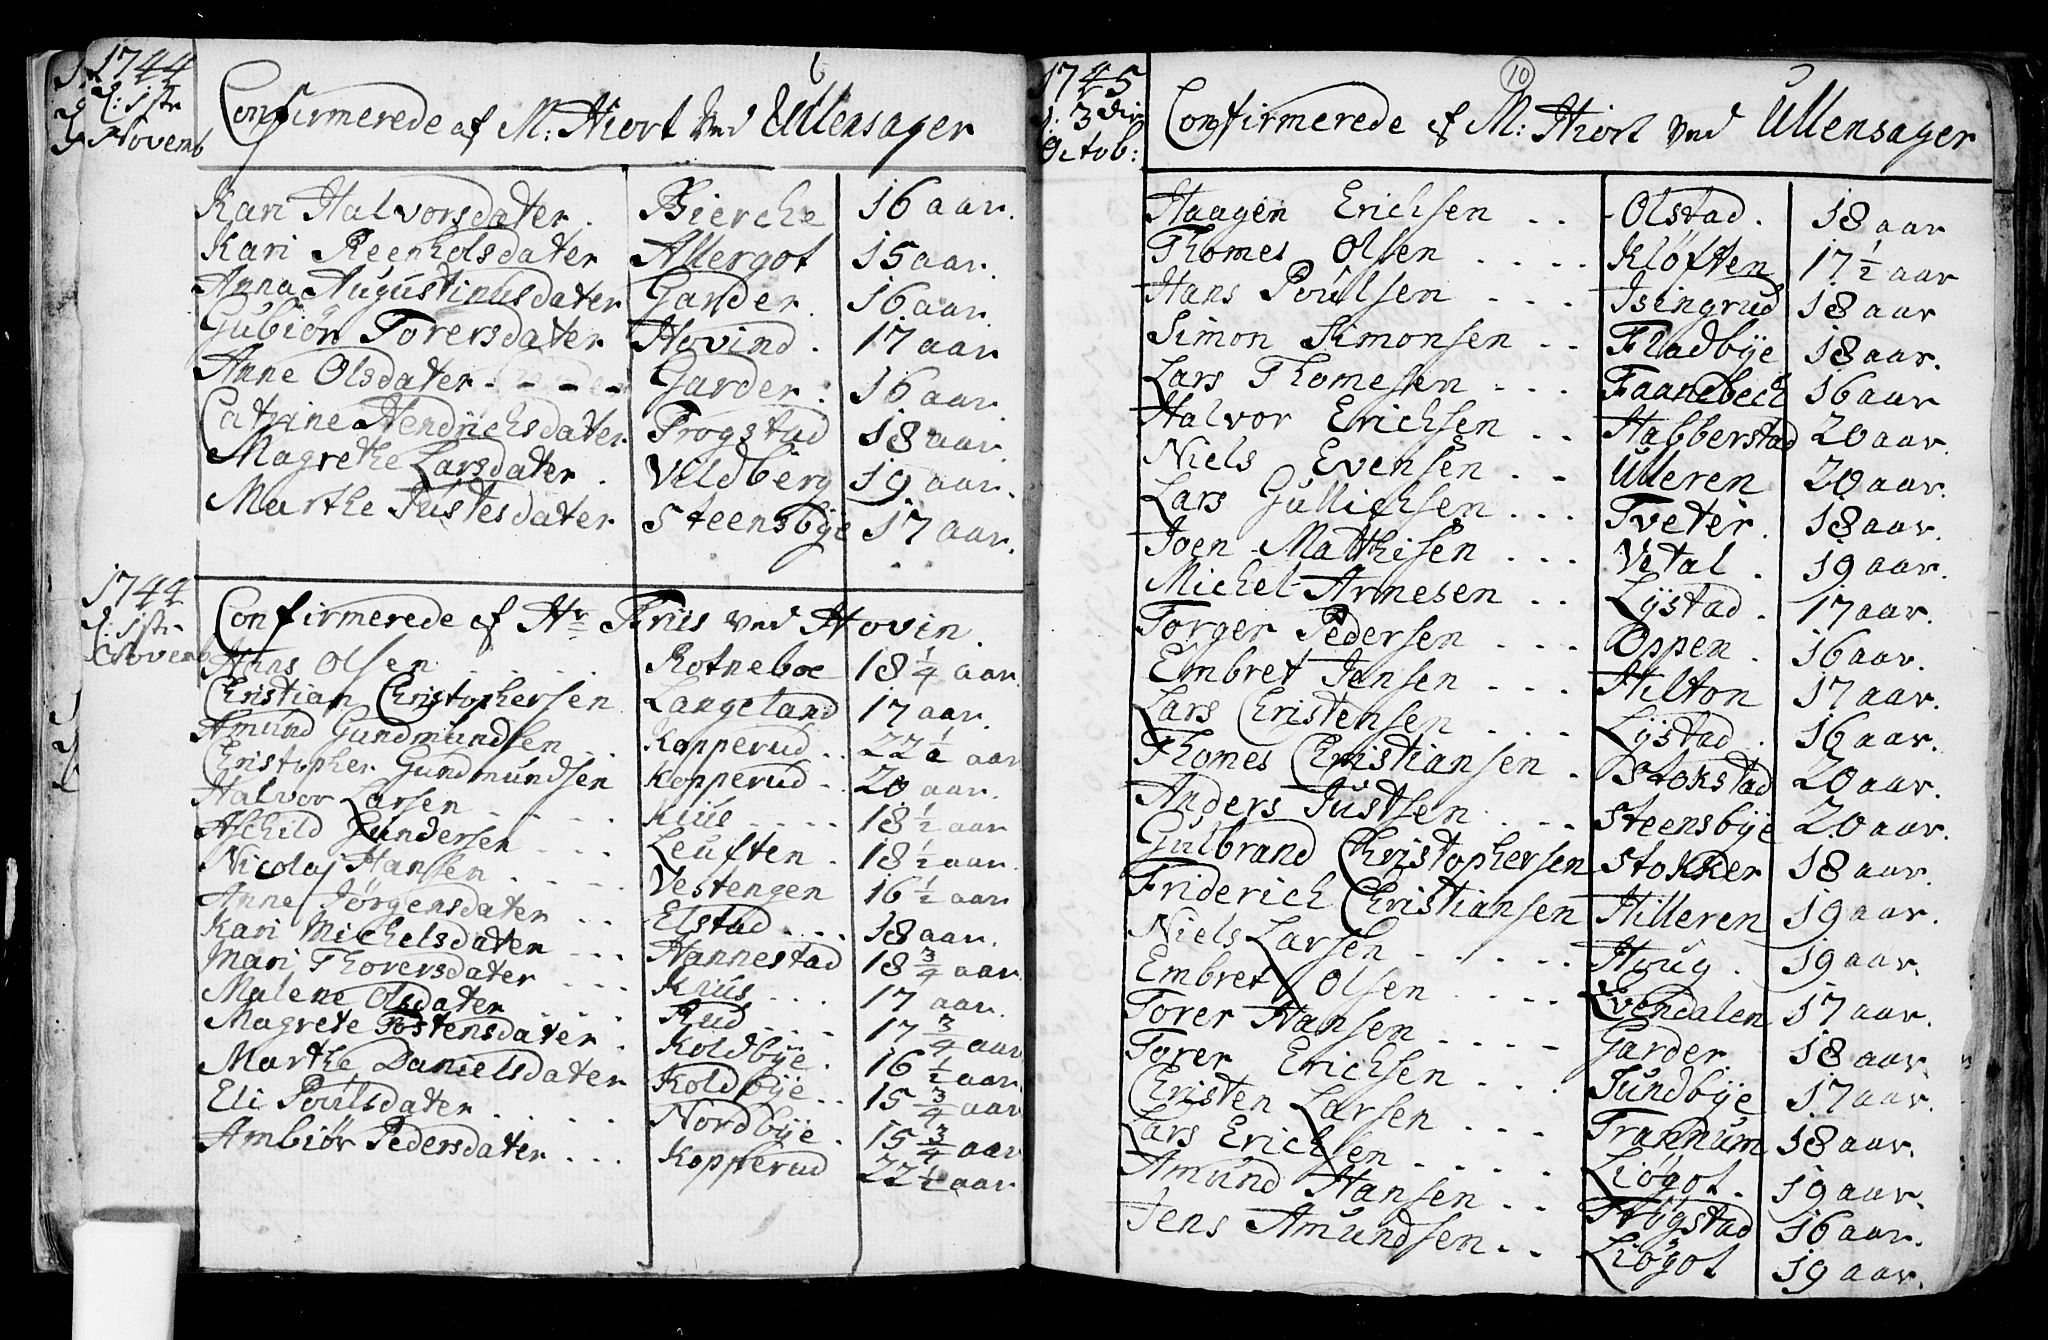 1744
d: 1ste
Novemb
Confirmerede af M: Hiort ved Ullensager
Kari Halvorsdater. Bierche 16 aar.
Kari Reenholsdater Allergot 15 aar.
Anna Augustinusdater Garder. 16 aar.
Gubiør Torersdater Hovind. 17 aar.
Anne Olsdater - - - - Garder. 16 aar.
Catrine Hendrichsdater Frogstad 18 aar.
Magrethe Larsdater. Veldberg 19 aar.
Marthe Justesdater Steensbÿe 17 aar.
1744
d: 1ste
Novemb
Confirmerede af Hr Friis ved Hovin.
Hans Olsen . . . . Kotneboe 18 1/4 aar.
Christian Christophersen Langeland 17 aar.
Amund Gundmundsen . . Kopperud . . 22 1/2 aar
Christopher Gundmundsen Kopperud . . 20 aar.
Halvor Larsen . . . . Kius . . . . 18 1/2 aar
Aschild Gundersen . . . Leuften . 18 1/2 aar.
Nicolaj Hansen . . . . Vestengen 16 1/2 aar.
Anne Jörgensdater . . Elstad . . . 18 aar.
Kari Michelsdater . . . Hannestad 18 3/4 aar.
Mari Thorersdater . . . Kius . . . 17 aar.
Malene Olsdater . . . . Rud . . . . 17 3/4 aar
Magrete Postensdater . Koldbÿe. 16 1/2 aar.
Marthe Danielsdater Koldbÿe . . 15 3/4 aar
Eli Poulsdater . . . . . Nordbÿe . 15 3/4 aar
Ambiør Pedersdater . . . Kopperud 22 1/2 aar
10
1745
d: 3die
Octob:
Confirmerede af M: Hiort ved Ullensager
Haagen Erichsen . . . Olstad. 18 aar
Thomes Olsen . . . . Kløften 17 1/2 aar
Hans Poulsen . . . . Isingrud 18 aar
Simon Simonsen . . Fladbÿe 18 aar.
Lars Thomesen . . . Faanebech 16 aar
Halvor Erichsen . . Habberstad 20 aar.
Niels Evensen . . Ulleren 20 aar.
Lars Gullichsen . . . Tveter. 18 aar.
Joen Matthisen . . . Vetal. 19 aar.
Michel Arnesen . . Lÿstad. 17 aar.
Torger Pedersen . . . Oppen. 16 aar.
Embret Jensen . . . Hilton 17 aar.
Lars Christensen . . . . Lÿstad. 16 aar.
Thomes Christiansen . Stokstad 20 aar.
Anders Justsen . . . . Steensbÿe 20 aar.
Gulbrand Christophersen Stokker 18 aar.
Friderich Christiansen Hilleren 19 aar.
Niels Larsen . . . . . Houg. 19 aar.
Embret Olsen . . . . Evendalen 17 aar.
Torer Hansen . . . . Garder. 18 aar.
Torer Erichsen . . . Sundbÿe 17 aar.
Christen Larsen . . . Frannum 18 aar.
Lars Erichsen . . . . Liøgot. 19 aar.
Amund Hansen . . Frogstad 16 aar.
Jens Amundsen . . Liøgot 19 aar.